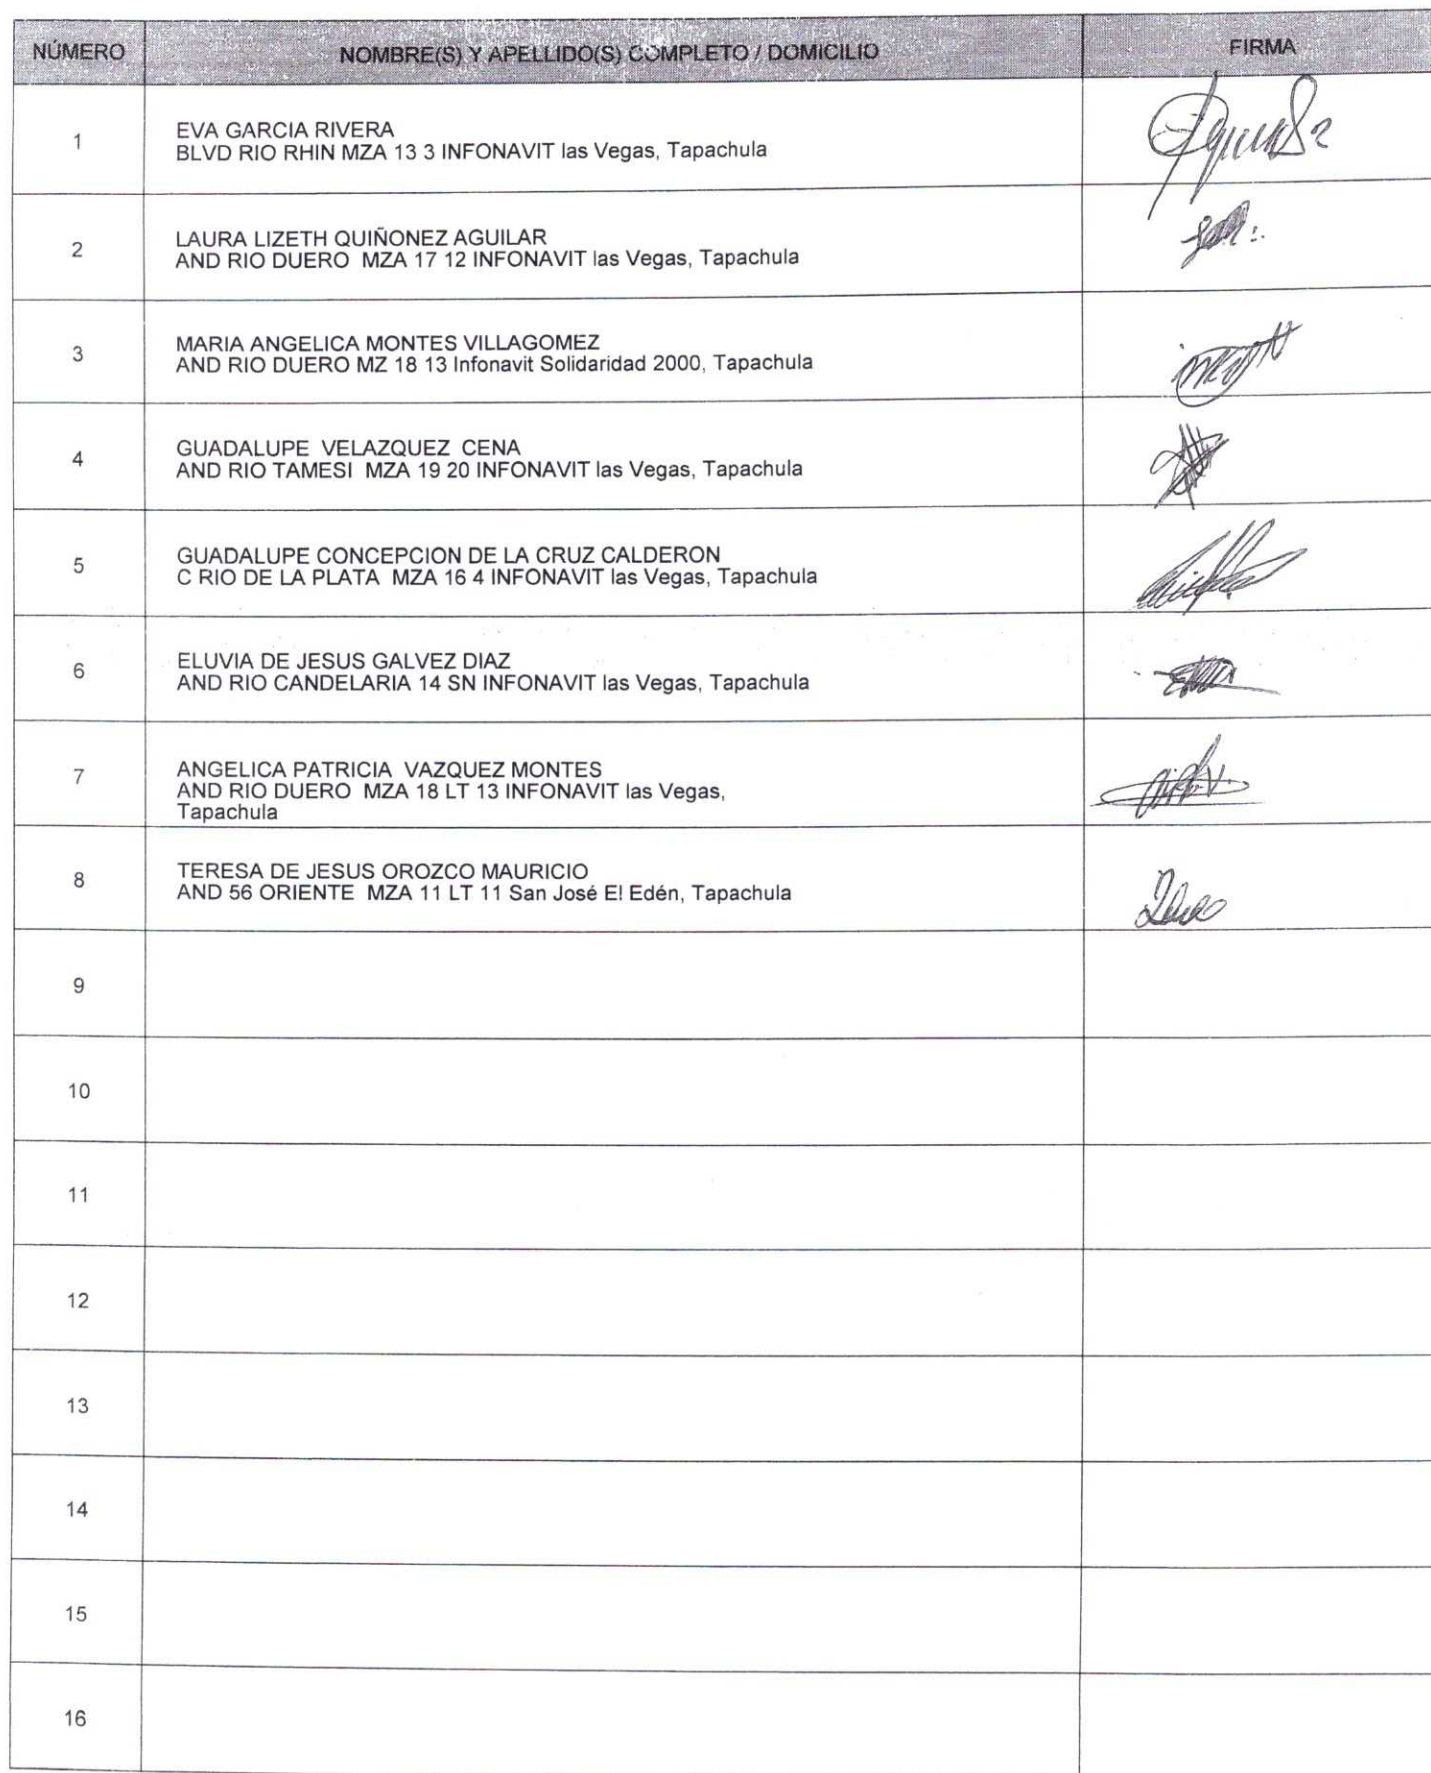 NÚMERO NOMBRE(S) Y APELLIDO(S) COMPLETO / DOMICILIO FIRMA
1 EVA GARCIA RIVERA
BLVD RIO RHIN MZA 13 3 INFONAVIT las Vegas, Tapachula
2 LAURA LIZETH QUIÑONEZ AGUILAR
AND RIO DUERO MZA 17 12 INFONAVIT las Vegas, Tapachula
3 MARIA ANGELICA MONTES VILLAGOMEZ
AND RIO DUERO MZ 18 13 Infonavit Solidaridad 2000, Tapachula
4 GUADALUPE VELAZQUEZ CENA
AND RIO TAMESI MZA 19 20 INFONAVIT las Vegas, Tapachula
5 GUADALUPE CONCEPCION DE LA CRUZ CALDERON
C RIO DE LA PLATA MZA 16 4 INFONAVIT las Vegas, Tapachula
6 ELUVIA DE JESUS GALVEZ DIAZ
AND RIO CANDELARIA 14 SN INFONAVIT las Vegas, Tapachula
7 ANGELICA PATRICIA VAZQUEZ MONTES
AND RIO DUERO MZA 18 LT 13 INFONAVIT las Vegas,
Tapachula
8 TERESA DE JESUS OROZCO MAURICIO
AND 56 ORIENTE MZA 11 LT 11 San José El Edén, Tapachula
9
10
11
12
13
14
15
16